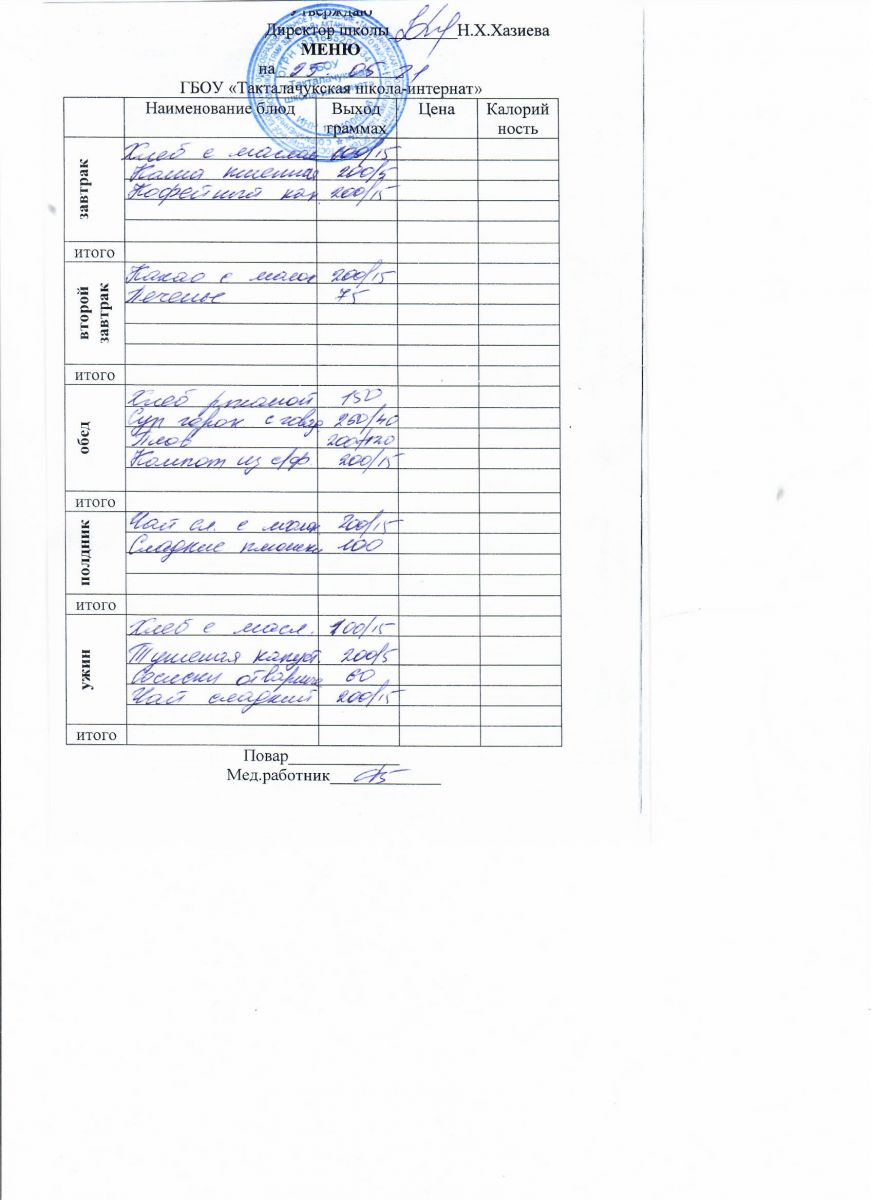 Утверждаю
Директор школы________Н.Х.Хазиева
МЕНЮ
на 25 . 05 . 21
ГБОУ «Такталачукская школа-интернат»
Наименование блюд Выход граммах Цена Калорий ность
завтрак
Хлеб с маслом 100/15
Каша пшенная 200/5
Кофейный нап. 200/15
итого
второй завтрак
Какао с молок 200/15
Печенье 75
итого
обед
Хлеб ржаной 150
Суп горох с говяд 250/40
Плов 200/120
Компот из с/ф 200/15
итого
полдник
Чай сл. с молок 200/15
Сладкие плюшки 100
итого
ужин
Хлеб с масл. 100/15
Тушеная капуст. 200/5
Сосиски отварные 60
Чай сладкий 200/15
итого
Повар_____________
Мед.работник_____________